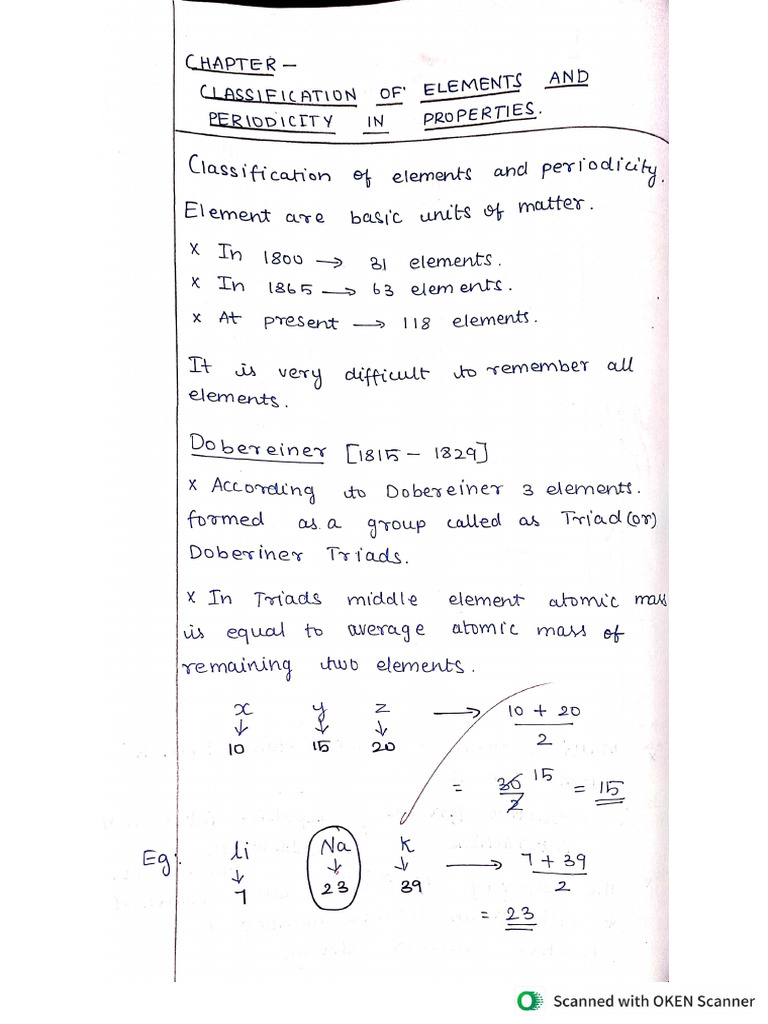 CHAPTER –
CLASSIFICATION OF ELEMENTS AND
PERIODICITY IN PROPERTIES.
Classification of elements and periodicity.
Element are basic units of matter.
x In 1800 → 31 elements.
x In 1865 → 63 elements.
x At present → 118 elements.
It is very difficult to remember all
elements.
Dobereiner [1815 – 1829]
x According to Dobereiner 3 elements.
formed as a group called as Triad (or)
Doberiner Triads.
x In Triads middle element atomic mass
is equal to average atomic mass of
remaining two elements.
x y z → 10 + 20
↓ ↓ ↓ 2
10 15 20
= 30/2 15 = 15
Eg: Li Na K → 7 + 39
↓ ↓ ↓ 2
7 23 39
= 23
Scanned with OKEN Scanner